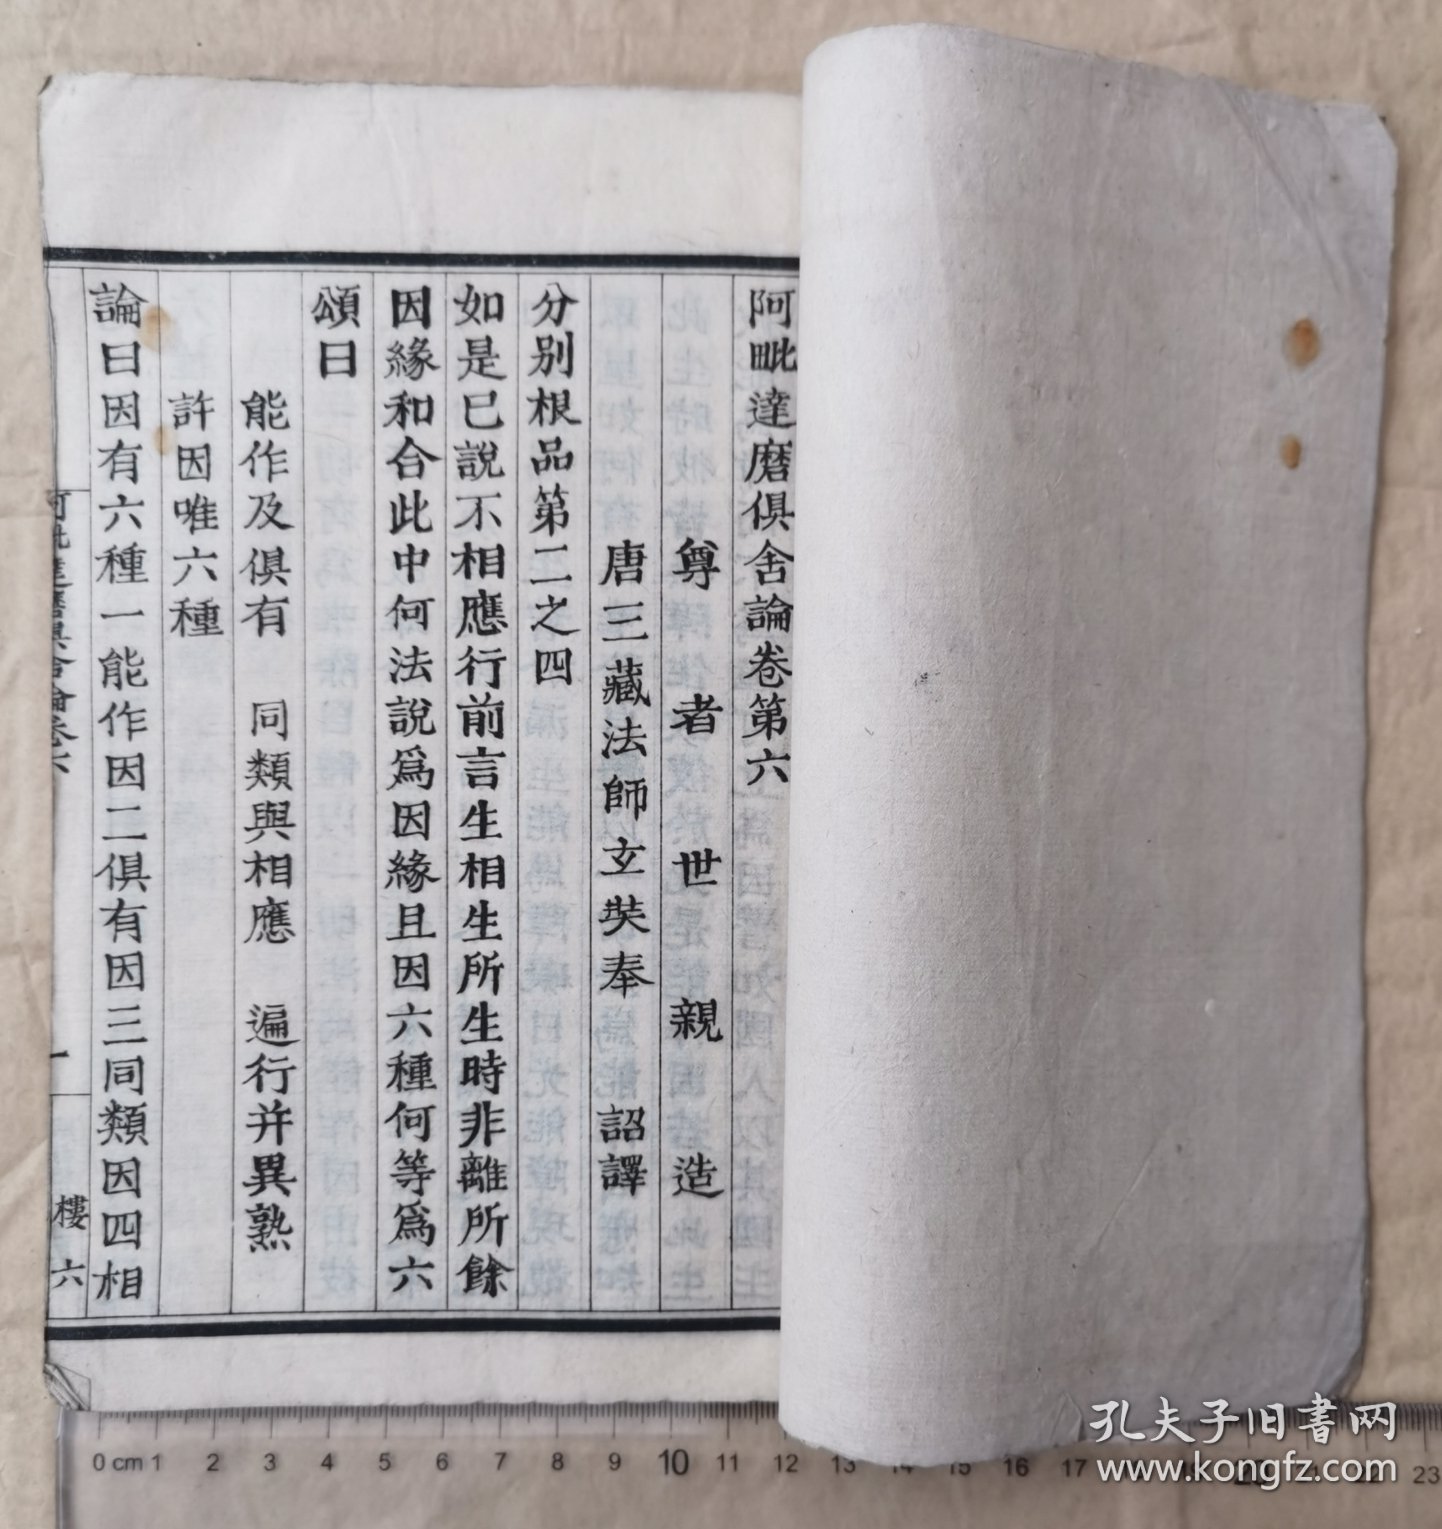 阿毗達磨俱舍論卷第六
尊者世親造
唐三藏法師玄奘奉 詔譯
分别根品第二之四
如是已說不相應行前言生相生所生時非離所餘
因緣和合此中何法說爲因緣且因六種何等爲六
頌曰
能作及俱有 同類與相應 遍行并異熟
許因唯六種
論曰因有六種一能作因二俱有因三同類因四相
阿毗達磨俱舍論卷六
一
樓六
孔夫子旧书网
www.kongfz.com
0 cm 1 2 3 4 5 6 7 8 9 10 11 12 13 14 15 16 17 18 19 20 21 22 23